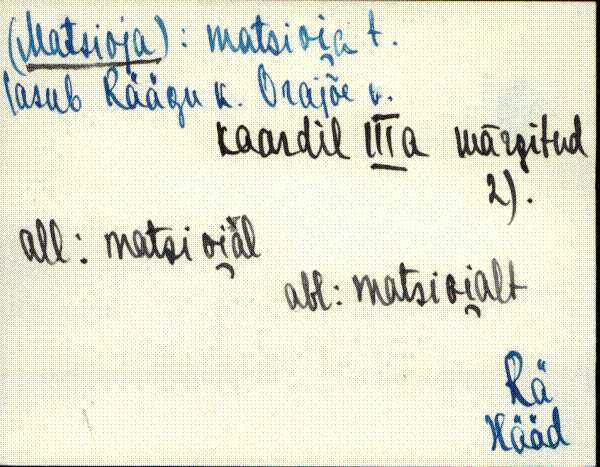 (Matsioja): matsioi̯a t.
asub Räägu k. Orajõe v.
kaardil IIIa märgitud
2).
all: matsioi̯al
abl: matsioi̯alt
Rä
Hääd